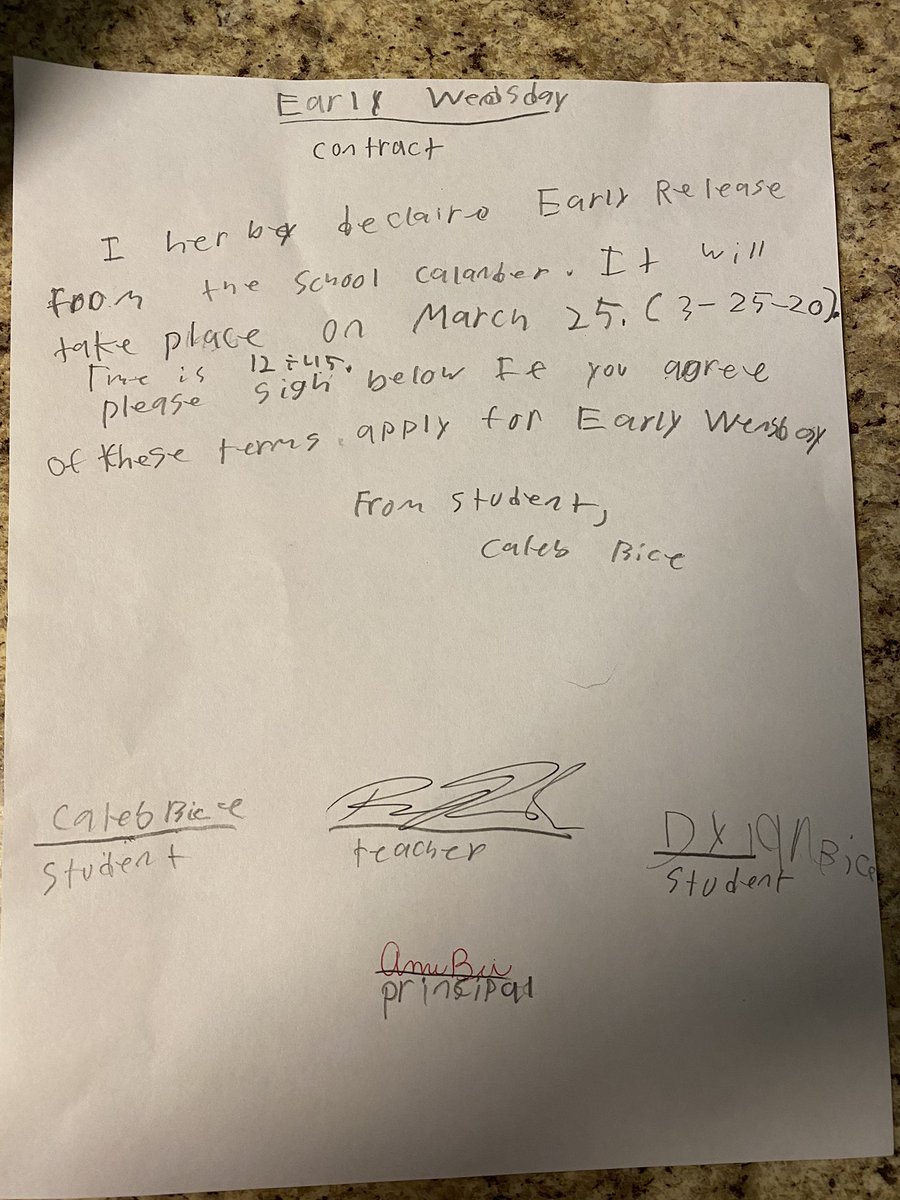 Early Wensday
contract
I herby declaire Early Release
from the school calander. It will
take place on March 25. (3-25-20).
Time is 12:45.
please sign below If you agree
of these terms apply for Early Wensday
From student,
Caleb Bice
Caleb Bice
student
teacher
Dylan Bice
student
principal